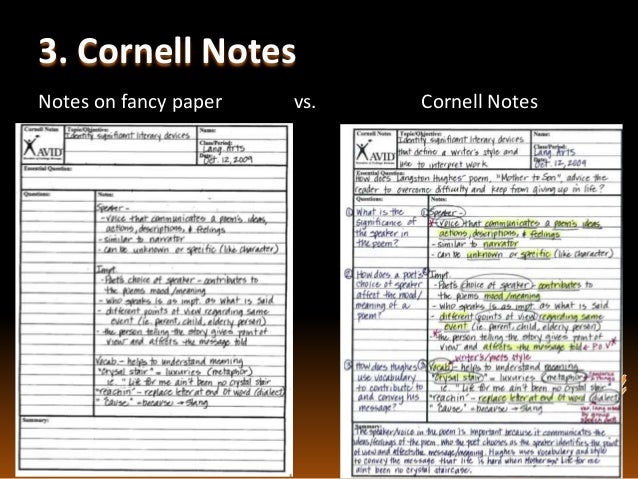 3. Cornell Notes
Notes on fancy paper vs. Cornell Notes
Cornell Notes
Topic/Objective:
Name:
Identify significant literary devices
Class/Period:
Lang. Arts
AVID
Date:
Oct. 12, 2009
Essential Question:
Questions:
Notes:
Speaker -
- voice that communicates a poem's ideas,
actions, descriptions, & feelings
- similar to narrator
- can be unknown or specific (like character)
Impt.
- Poet's choice of speaker - contributes to
the poems mood/meaning
- who speaks is as impt. as what is said
- different points of view regarding same
event (ie. parent, child, elderly person)
- the person telling the story gives point of
view and affects the message told
Vocab - helps to understand meaning
"Crystal stair" = luxuries (metaphor)
ie. "Life for me ain't been no crystal stair
"reachin" - replace letter at end of word (dialect)
"'Cause" = because → slang
Summary:
Cornell Notes
Topic/Objective:
Name:
Identify significant literary devices
that define a writer's style and
use to interpret work.
Class/Period:
Lang. Arts
AVID
Date:
Oct. 12, 2009
Essential Question:
How does Langston Hughes' poem, "Mother to Son", advice the
reader to overcome difficulty and keep from giving up in life?
Questions:
Notes:
① What is the
significance of
the speaker in
the poem?
① Speaker -
voice that communicates a poem's ideas,
actions, descriptions, & feelings
- similar to narrator
- can be unknown or specific (like character)
② How does a poet's
choice of speaker
affect the mood/
meaning of a
poem?
② Impt.
- Poet's choice of speaker - contributes to
the poems mood/meaning
- who speaks is as impt. as what is said
- different points of view regarding same
event (ie. parent, child, elderly person)
- the person telling the story gives point of
view and affects the message told P.O.V
writer's/poets style
③ How does Hughes
use vocabulary
to contribute to
and convey his
message?
③ Vocab - helps to understand meaning
"Crystal stair" = luxuries (metaphor)
ie. "Life for me ain't been no crystal stair
"reachin" - replace letter at end of word (dialect)
"'Cause" = because → slang
Summary:
The speaker/voice in the poem is important because it communicates the
ideas/feelings of the poem. Who the poet chooses as the speaker identifies the point
of view and affects the message/meaning. Hughes uses vocabulary and style
to convey the message that life is hard when Mother says Life for me
aint been no crystal staircase.